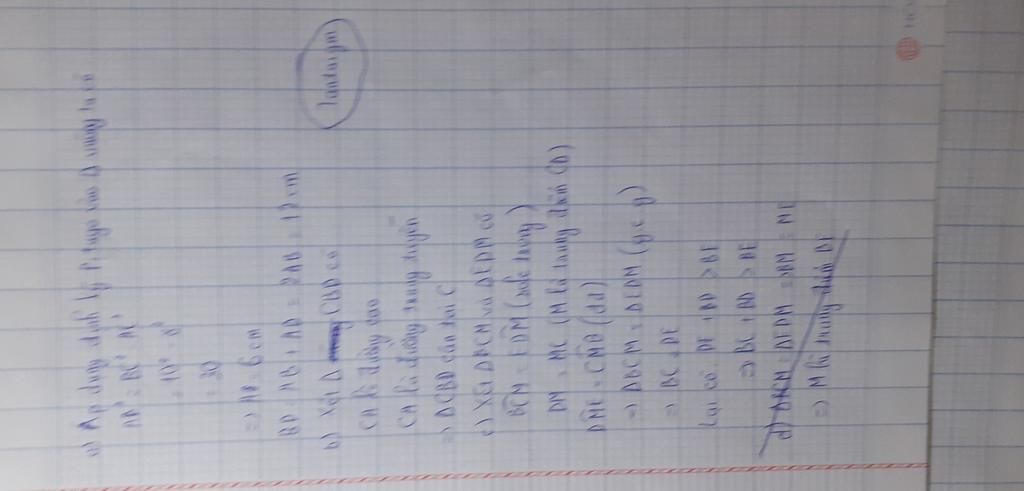 a) Áp dụng định lý Pitago vào Δ vuông ta có
AB² = BC² - AC²
= 10² - 8²
= 36
=> AB = 6 cm
BD = AB + AD = 2AB = 12 cm
b) Xét Δ CBD có
CA là đường cao
CA là đường trung tuyến
=> ΔCBD cân tại C
c) Xét ΔBCM và ΔEDM có
BCM = EDM (so le trong)
DM = MC (M là trung điểm CD)
BMC = EMD (đđ)
=> ΔBCM = ΔEDM (g.c.g)
=> BC = DE
Lại có: DE + BD > BE
=> BC + BD > BE
d) ΔBCM = ΔEDM => BM = ME
=> M là trung điểm BE